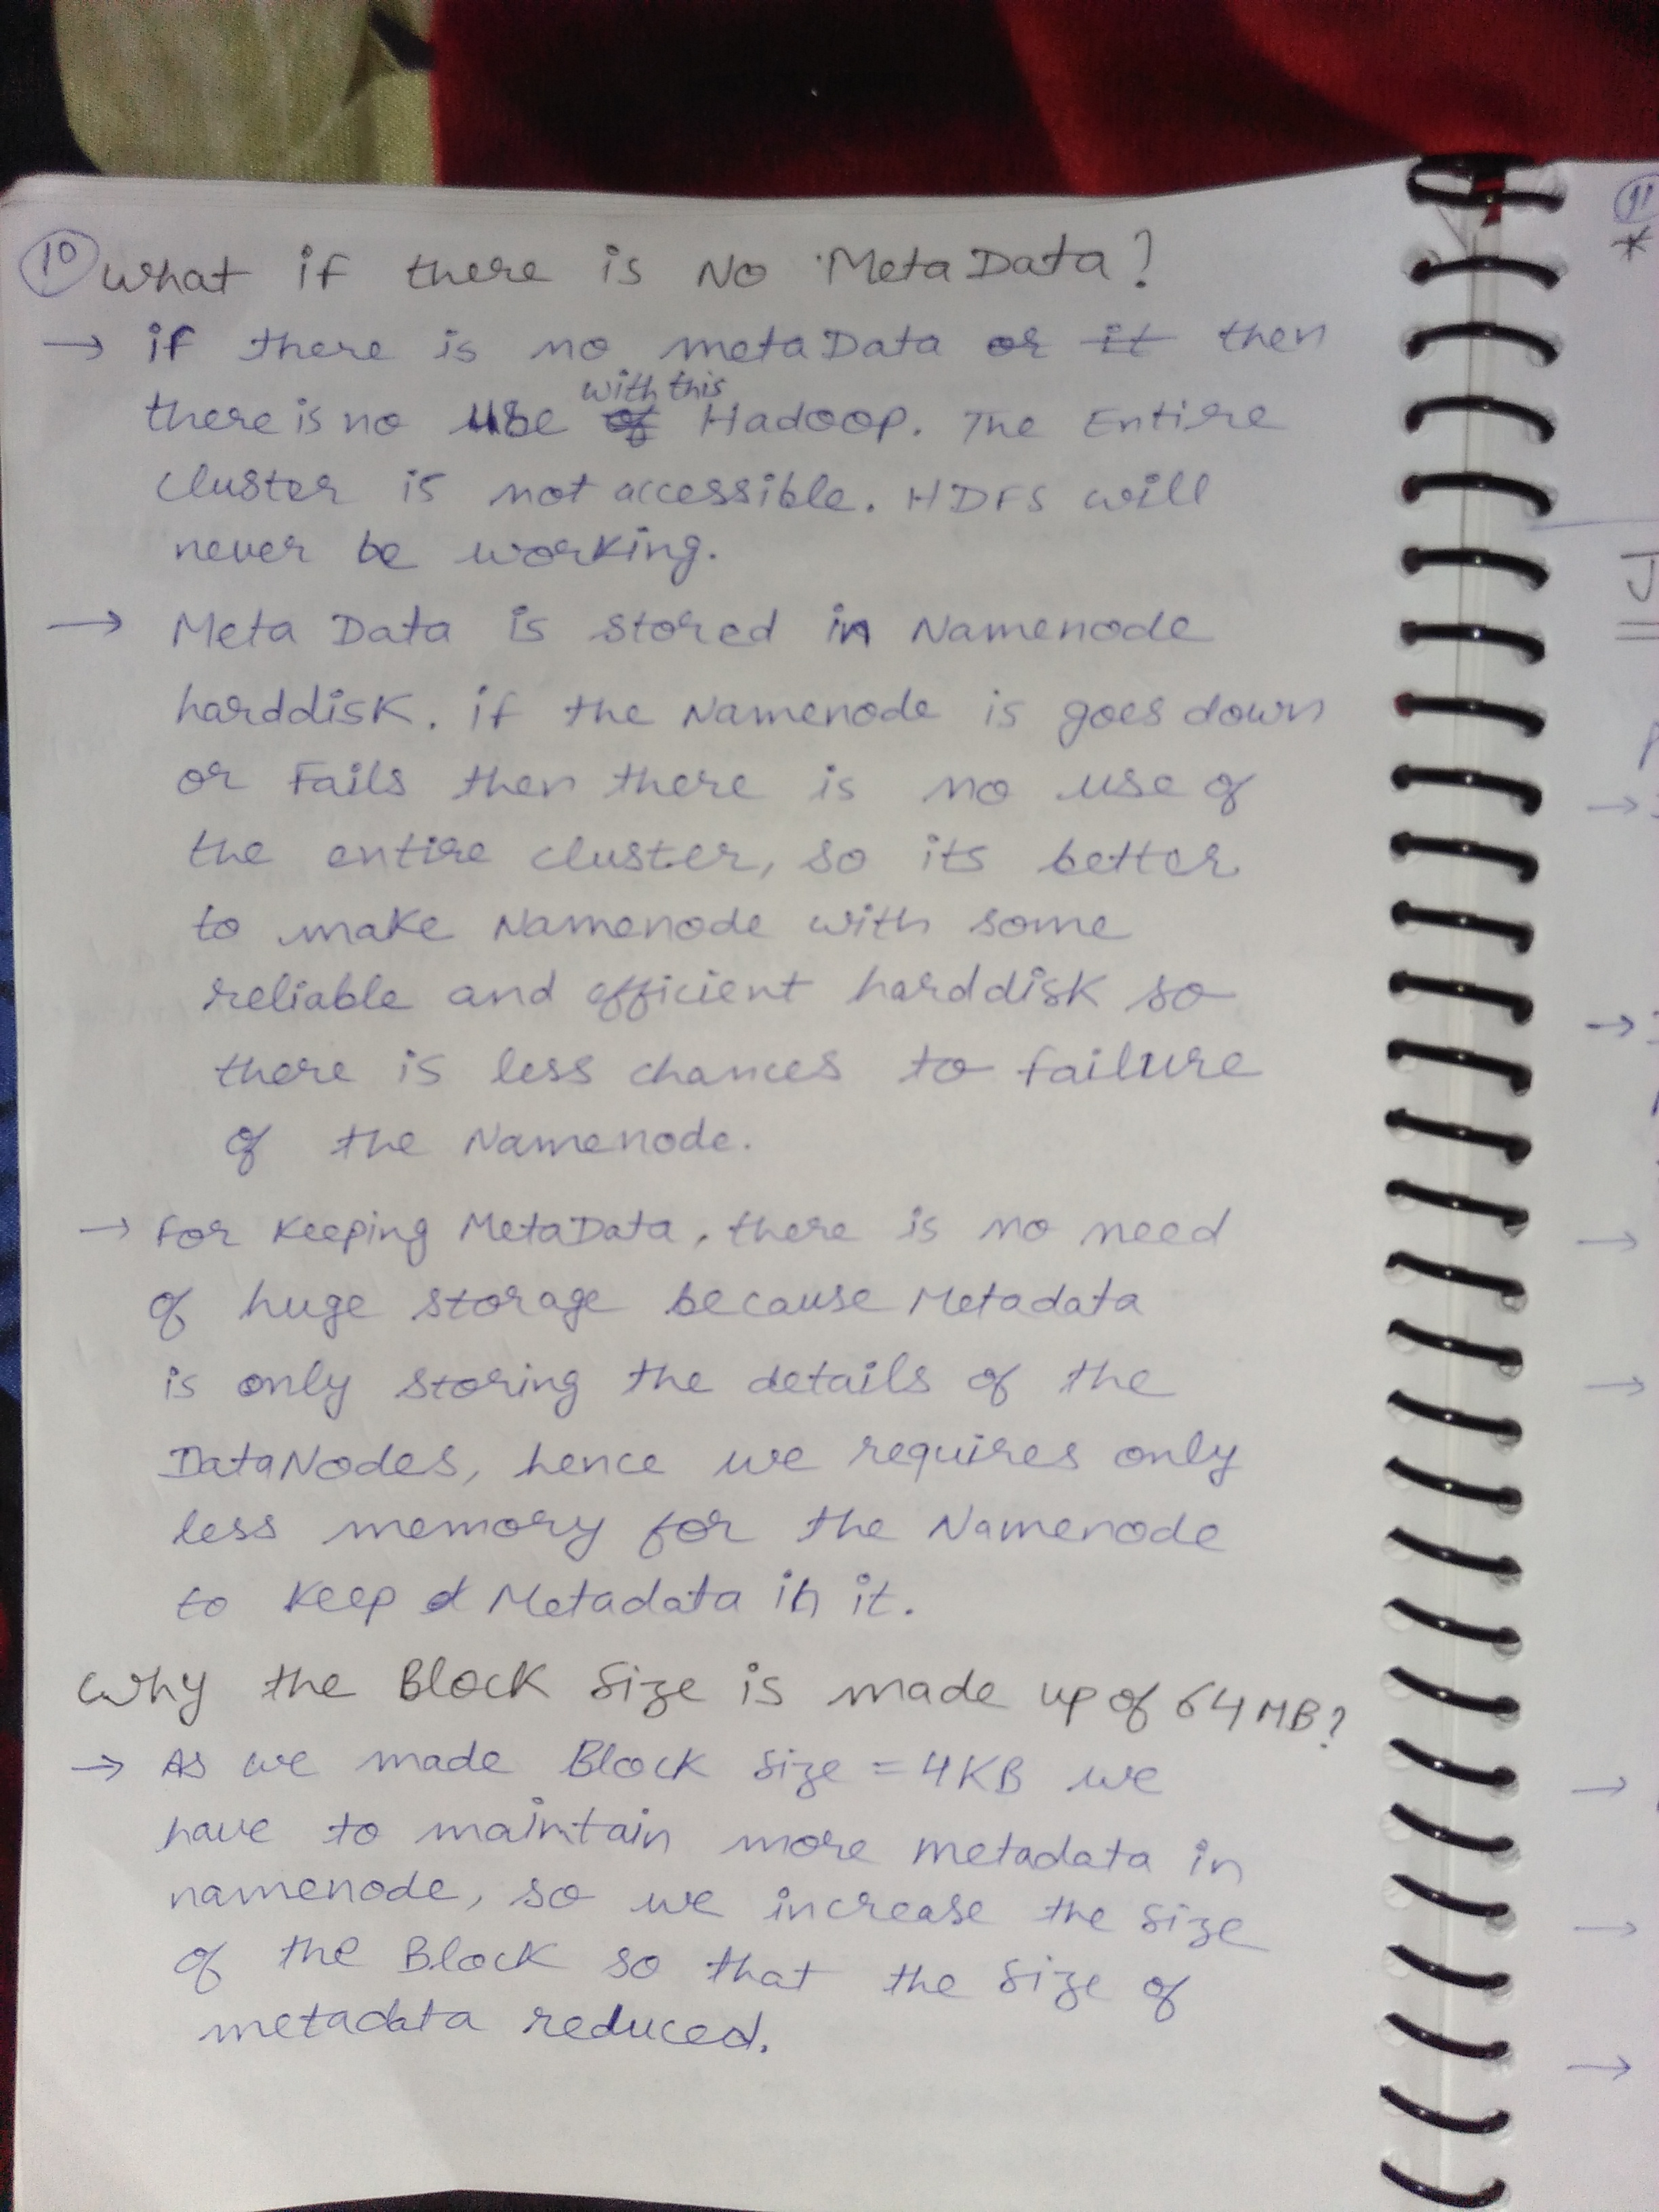 10 What if there is No Meta Data?
→ if there is no meta Data or it then
with this
there is no use of Hadoop. The Entire
cluster is not accessible. HDFS will
never be working.
→ Meta Data is stored in Namenode
harddisk. if the Namenode is goes down
or Fails then there is no use of
the entire cluster, so its better
to make Namenode with some
reliable and efficient harddisk so
there is less chances to failure
of the Namenode.
→ For Keeping MetaData, there is no need
of huge storage because Metadata
is only storing the details of the
DataNodes, hence we requires only
less memory for the Namenode
to Keep d Metadata in it.
Why the Block Size is made up of 64 MB?
→ As we made Block Size = 4KB we
have to maintain more metadata in
namenode, so we increase the size
of the Block so that the size of
metadata reduced.
11
*
J
→
→
→
→
→
→
→